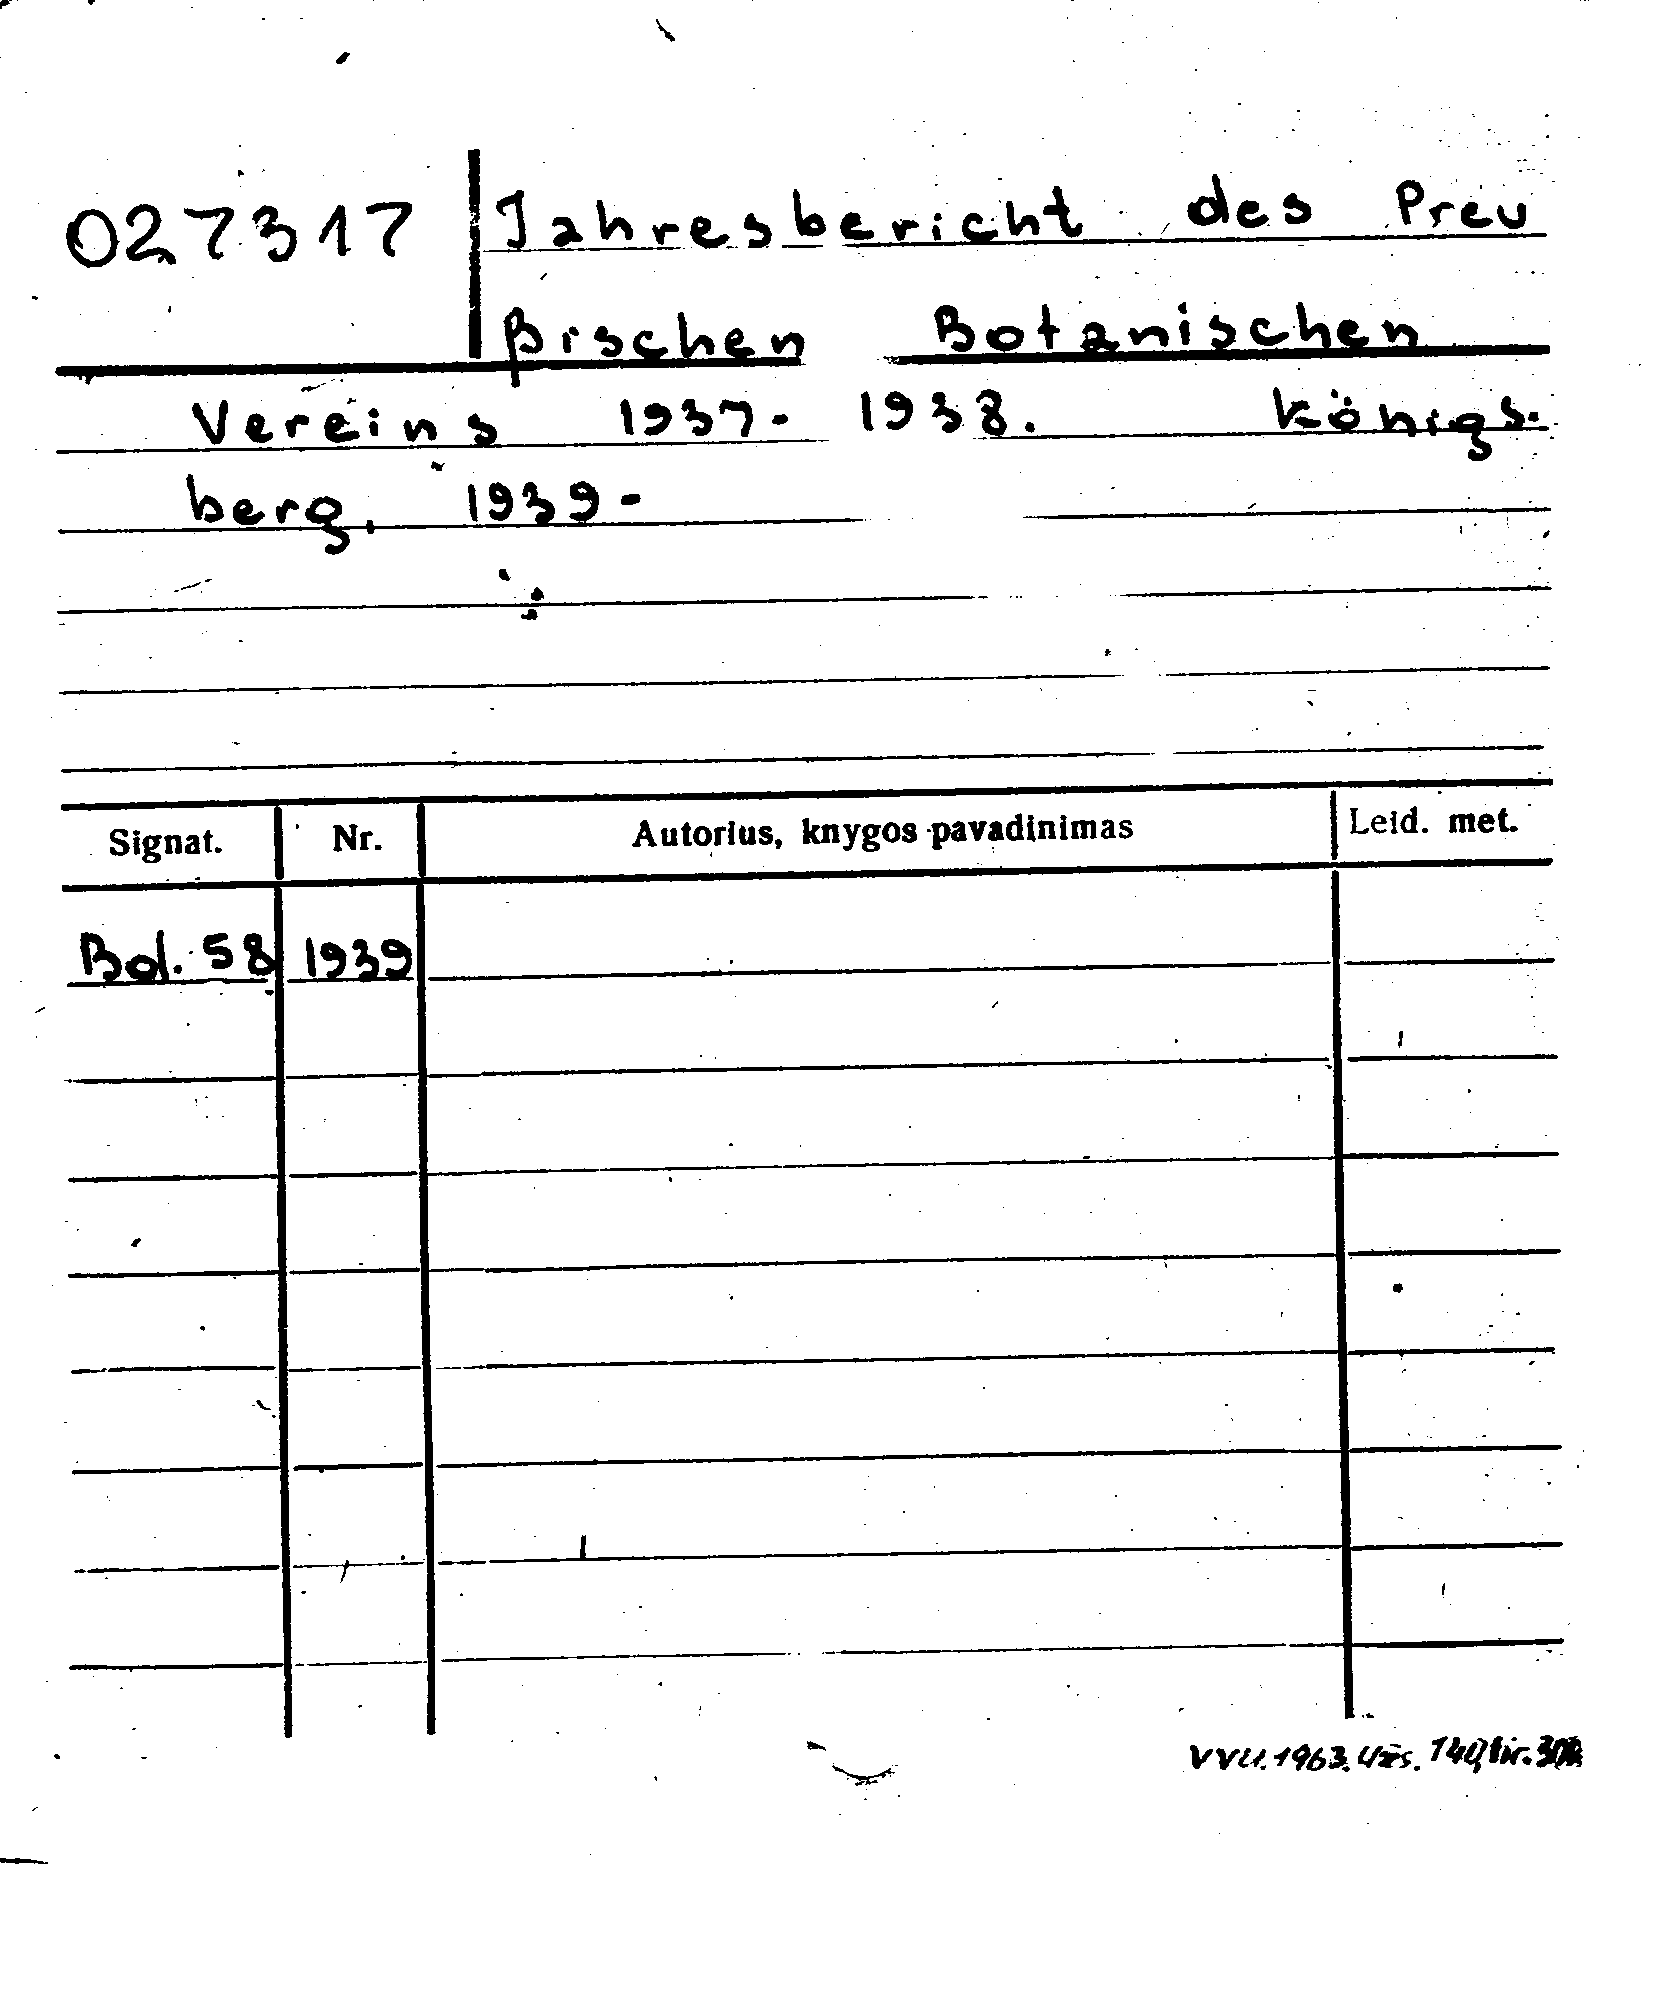 027317 Jahresbericht des Preu
ßischen Botanischen
Vereins 1937- 1938. Königs-
berg, 1939-
Signat. Nr. Autorius, knygos pavadinimas Leid. met.
Bol. 58 1939
VVU. 1963. Užs. 140, tir.